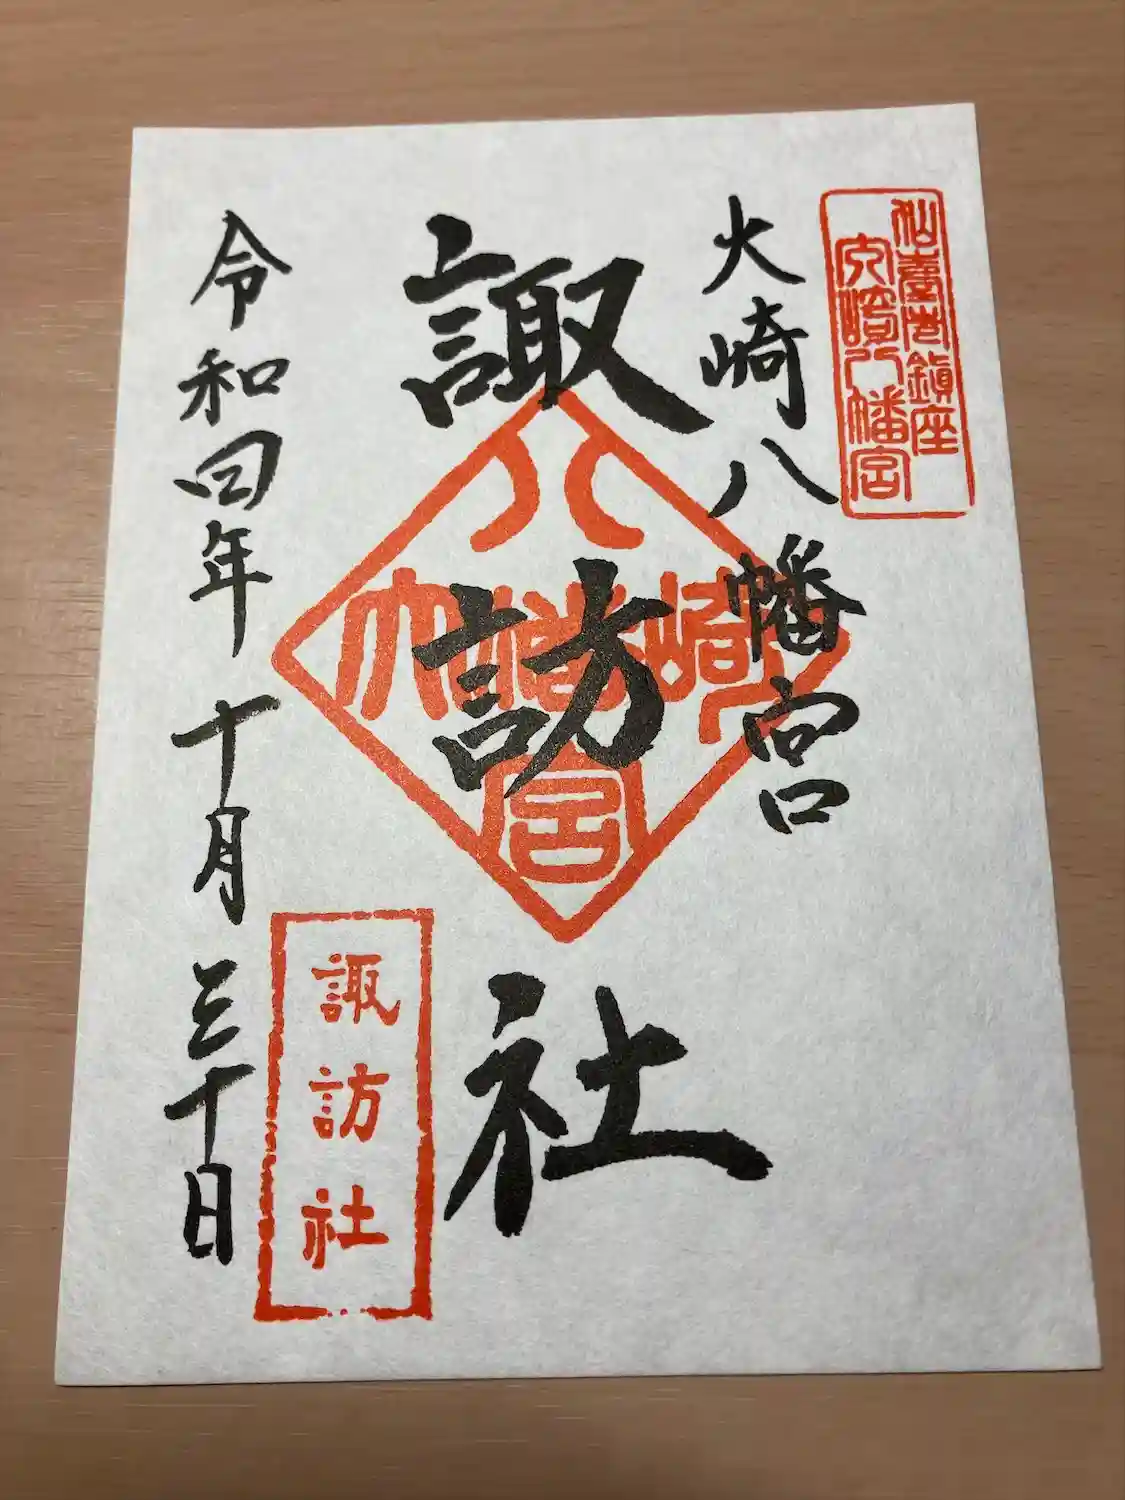 仙臺総鎮座
大崎八幡宮
大崎八幡宮
諏訪社
八
大幡崎
宮
諏訪社
令和四年十月三十日